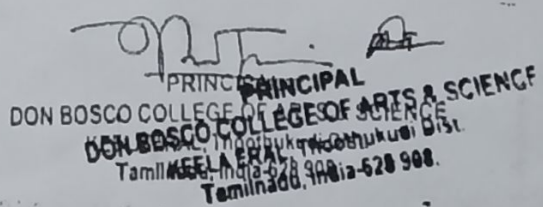 PRINCIPAL
DON BOSCO COLLEGE OF ARTS & SCIENCE
KEELA ERAL, Thoothukudi Dist.
Tamilnadu, India-628 908.
PRINCIPAL
DON BOSCO COLLEGE OF ARTS & SCIENCE
KEELA ERAL, Thoothukudi Dist.
Tamilnadu, India-628 908.